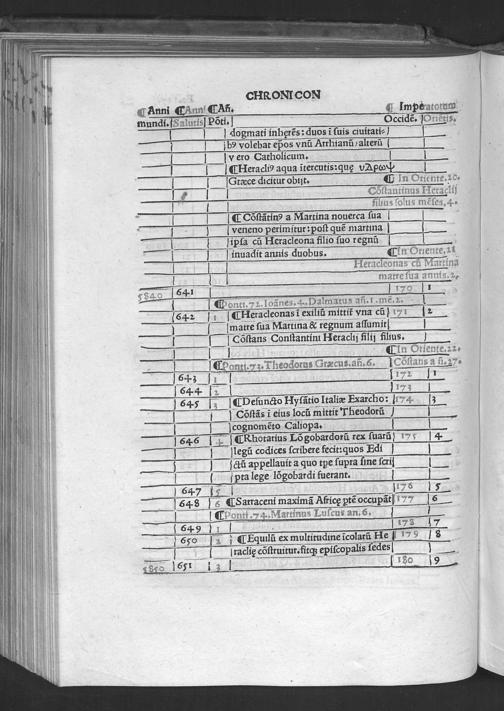 CHRONICON
¶Anni ¶Anni ¶Añ. ¶ Imperatorum
mundi. Salutis Põti. Occidẽ. Oriẽtis.
dogmati inhęrẽs: duos ĩ suis ciuitati
bꝰ volebat epos vnũ Arrhianũ, alterũ
vero Catholicum.
¶Heracliꝰ aqua itercutis: quę υΔρωψ
Græce dicitur obijt. ¶ In Oriente. 20.
Cõstantinus Heraclij
filius solus mẽses, 4.
¶ Cõstãtinꝰ a Martina nouerca sua
veneno perimitur: post quẽ martina
ipsa cũ Heracleona filio suo regnũ
inuadit annis duobus. ¶In Oriente, 21
Heracleonas cũ Martina
matre sua annis. 2.
5840 641 170 1
¶Ponti. 72. Ioãnes. 4. Dalmatus añ. 1. mẽ. 2.
642 1 ¶Heracleonas ĩ exiliũ mittit̃ vna cũ 171 2
matre sua Martina & regnum assumit
Cõstans Constantini Heraclij filij filius.
¶In Oriente. 22.
¶Ponti. 73. Theodorus Græcus. añ. 6. Cõstans a ñ. 27.
643 1 172 1
644 2 173
645 3 ¶Defuncto Hysatio Italiæ Exarcho: 174 3
Cõstãs ĩ eius locũ mittit Theodorũ
cognomẽto Caliopa.
646 4 ¶Rhotarius Lõgobardorũ rex suarũ 175 4
legũ codices scribere fecit: quos Edi
ctũ appellauit a quo tpe supra sine scri
pta lege lõgobardi fuerant.
647 5 176 5
648 6 ¶Sarraceni maximã Africę ptẽ occupãt 177 6
¶Ponti. 74. Martinus Luscus an. 6.
649 1 178 7
650 2 ¶Equilũ ex multitudine ĩcolarũ He 179 8
raclię cõstruitur. fitqȝ episcopalis sedes
5850 651 3 180 9